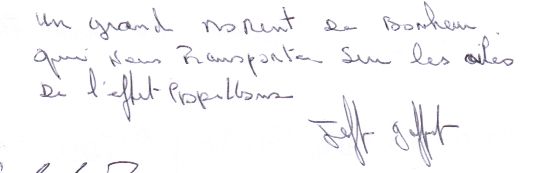 un grand moment de Bonheur
qui nous Transporte sur les ailes
de l'effet Papillons
Jeff